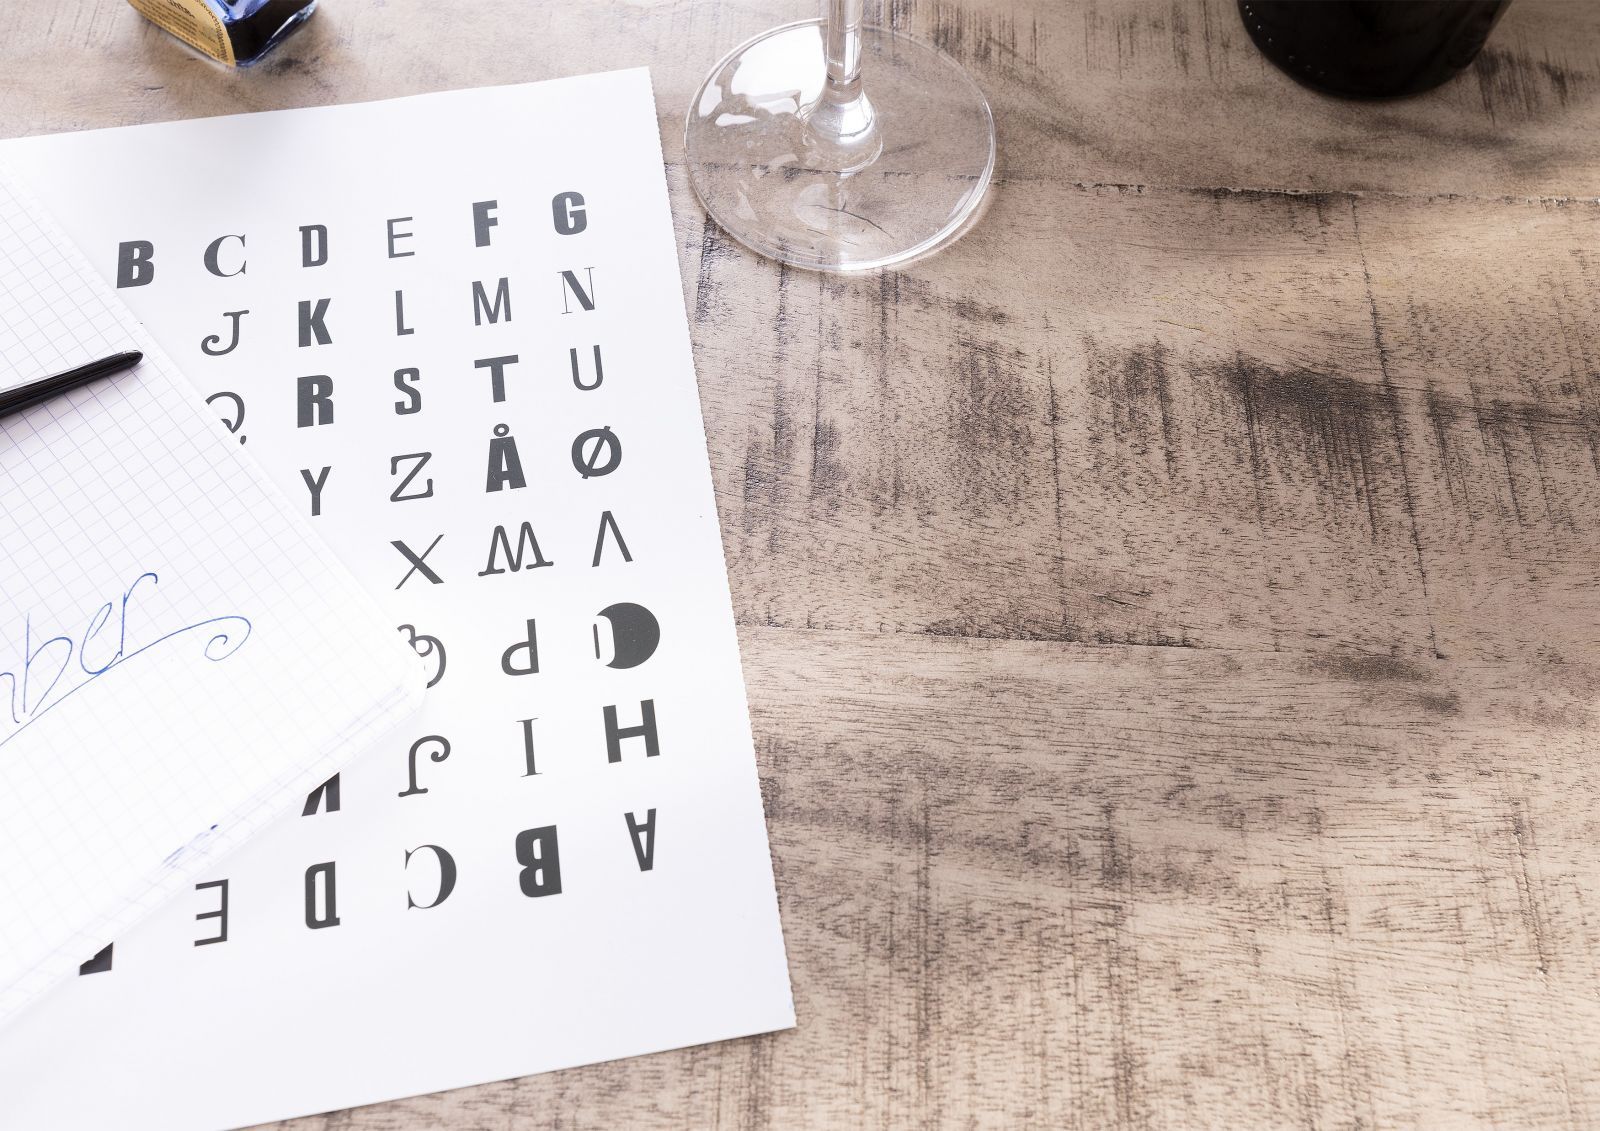 B C D E F G
J K L M N
Q R S T U
Y Z Å Ø
X W V
P
J I H
A B C D E
ber